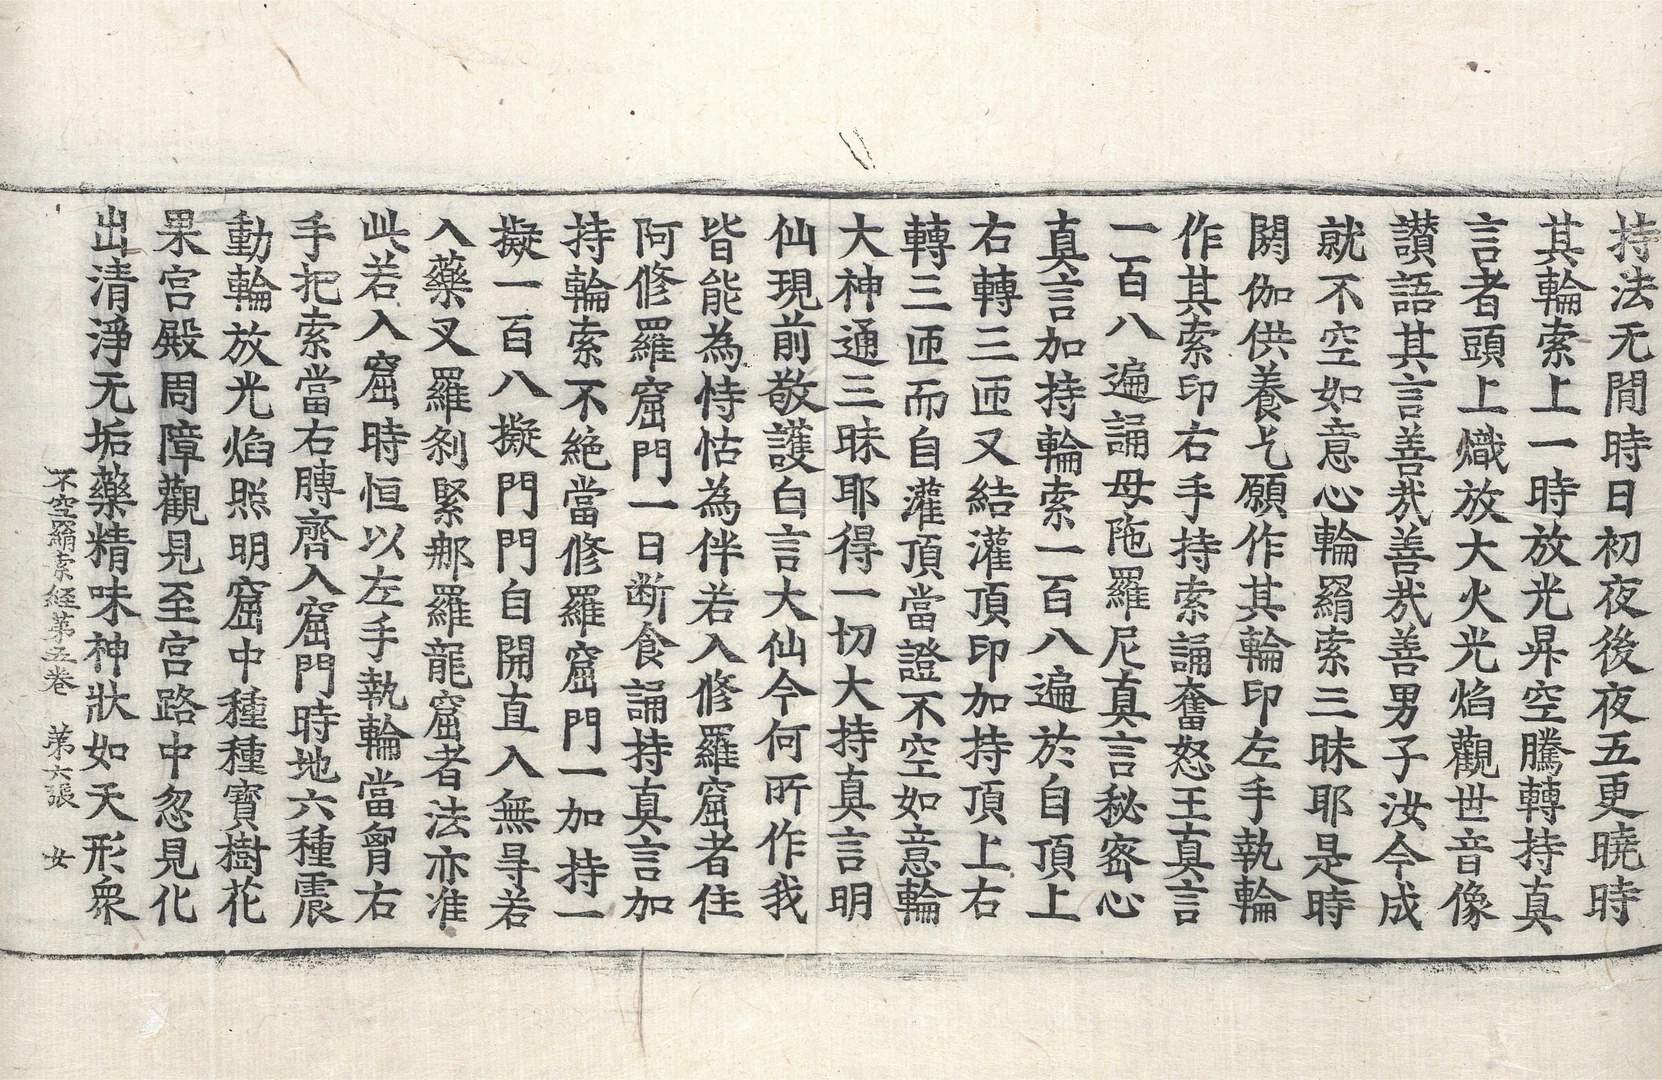 持法无間時日初夜後夜五更曉時
其輪索上一時放光昇空騰轉持真
言者頭上熾放大火光焰觀世音像
讃語其言善哉善哉善男子汝今成
就不空如意心輪羂索三昧耶是時
閼伽供養乞願作其輪印左手執輪
作其索印右手持索誦奮怒王真言
一百八遍誦母陁羅尼真言秘密心
真言加持輪索一百八遍於自頂上
右轉三匝又結灌頂印加持頂上右
轉三匝而自灌頂當證不空如意輪
大神通三昧耶得一切大持真言明
仙現前敬護白言大仙今何所作我
皆能為恃怙為伴若入修羅窟者住
阿修羅窟門一日断食誦持真言加
持輪索不絕當修羅窟門一加持一
擬一百八擬門門自開直入無㝵若
入藥叉羅剎緊那羅龍窟者法亦准
此若入窟時恒以左手執輪當胷右
手把索當右膞齊入窟門時地六種震
動輪放光焰照明窟中種種寳樹花
果宮殿周障觀見至宮路中忽見化
出清淨无垢藥精味神狀如天形衆
不空羂索經第五卷　第六張　女